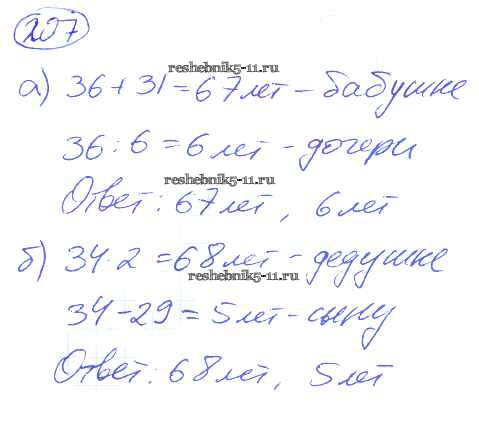 207
reshebnik5-11.ru
а) 36 + 31 = 67 лет - бабушке
36 : 6 = 6 лет - дочери
reshebnik5-11.ru
Ответ: 67 лет, 6 лет
б) 34 · 2 = 68 лет - дедушке
reshebnik5-11.ru
34 - 29 = 5 лет - сыну
Ответ: 68 лет, 5 лет